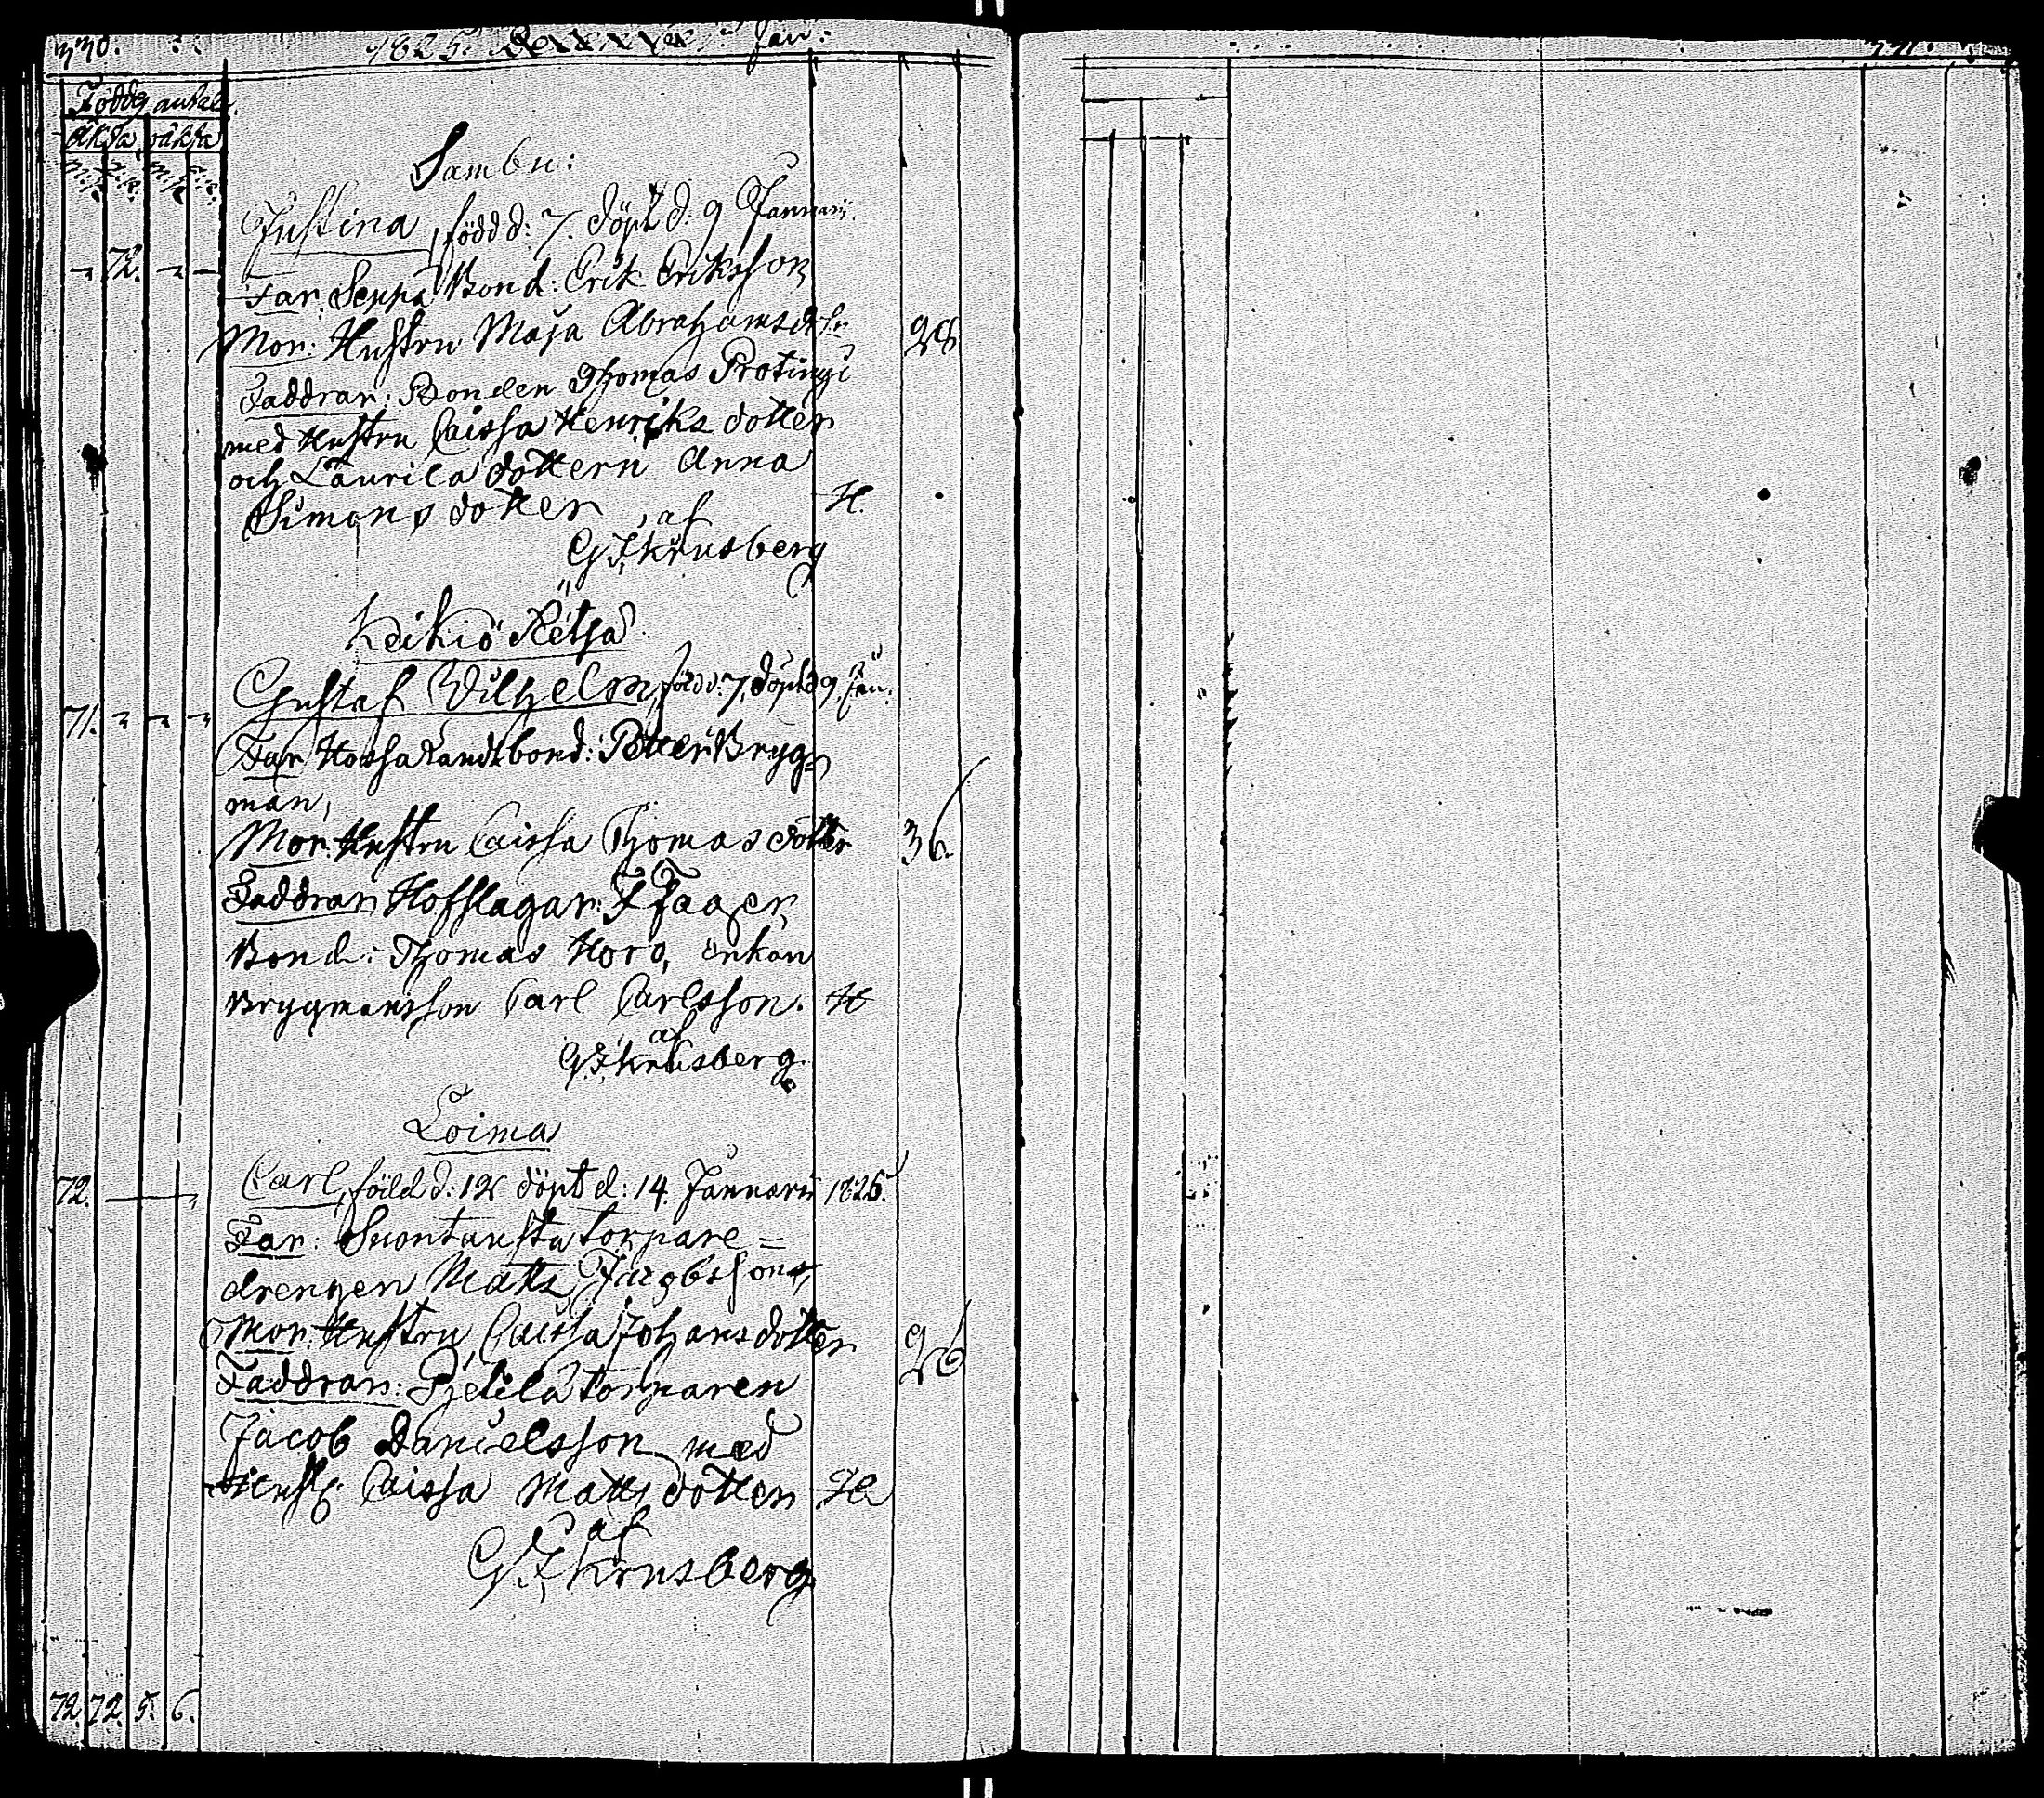 330. 1825. Jan:
Föddes antal.
äkta oäkta
Sambu:
Justina, född d: 7. döpt d: 9 Januarii
72.
Far: Seppä Bond: Erik Eriksson
Mor: Hustru Maja Abrahamsdotr 28
Faddrar: Bonden Thomas Protingi
med Hustru Caissa Henriks dotter
och Laurila dottern Anna
Simons dotter, af H.
G F, Krusberg
Keikiö Retsa
Gustaf Wilhelm, född: 7, döpt d 9, Jan:
71.
Far Hossa Landtbond: Petter Bryg=
man,
Mor: Hustru Caissa Thomas dotter 36
Faddrar Hofslagar: F Fager,
Bond: Thomas Horo, enkan
Brygmansson Carl Carlsson. H
af
G, F, Krusberg
Loima
72. Carl, född d: 12 döpt d: 14. Januarii 1826.
Far: Suontausta torpare=
drengen Matts Jacobsson,
Mor: Hustru, Caissa Johans dotter 26
Faddrar: Pjelila torparen
Jacob Danielsson med
Hustr: Caissa Matts dotter H
af
G F, Krusberg
72. 72. 5. 6.